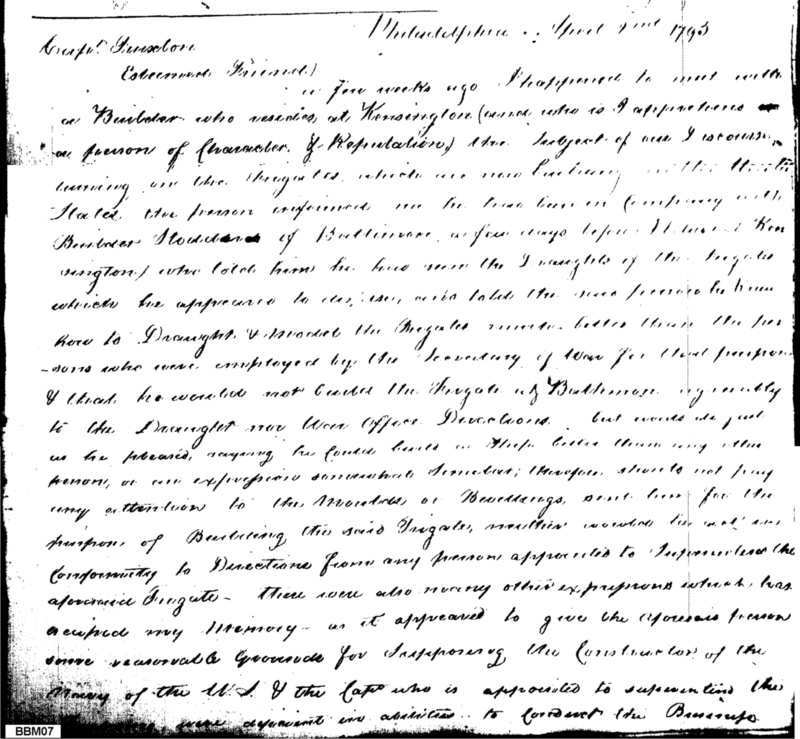 Philadelphia April 2nd 1795
Capt. Truxton
Esteemed Friend
a few weeks ago I happened to meet with
a Builder who resides at Kensington (and who is I apprehend
a person of Character & Reputation) the Subject of our Discourse
turning on the Frigates which are now building in the
States the person informed me he had been in Company with
Builder Stodder of Baltimore a few days before at Ken
sington) who told him he had seen the Draughts of the Frigates
which he appeared to and told the said person he knew
how to Draught & Model the Frigates much better than the per
-sons who were employed by the Secretary of War for that purpose
& that he would not build the Frigate at Baltimore agreeably
to the Draught nor War Office Directions but would do just
as he pleased, saying he could build a Ship better than any other
person, or an expression somewhat similar; therefore should not pay
any attention to the Moulds or Bevellings, sent him for the
purpose of Building the said Frigate, neither would he act in
Conformity to Directions from any person appointed to Superintend the
aforesaid Frigate - there were also many other expressions which has
escaped my Memory - as it appeared to give the aforesaid person
some reasonable Grounds for Supposing the Constructor of the
Navy of the U.S. & the Capt who is appointed to superintend the
were deficient in abilities to Conduct the Business
BBM07